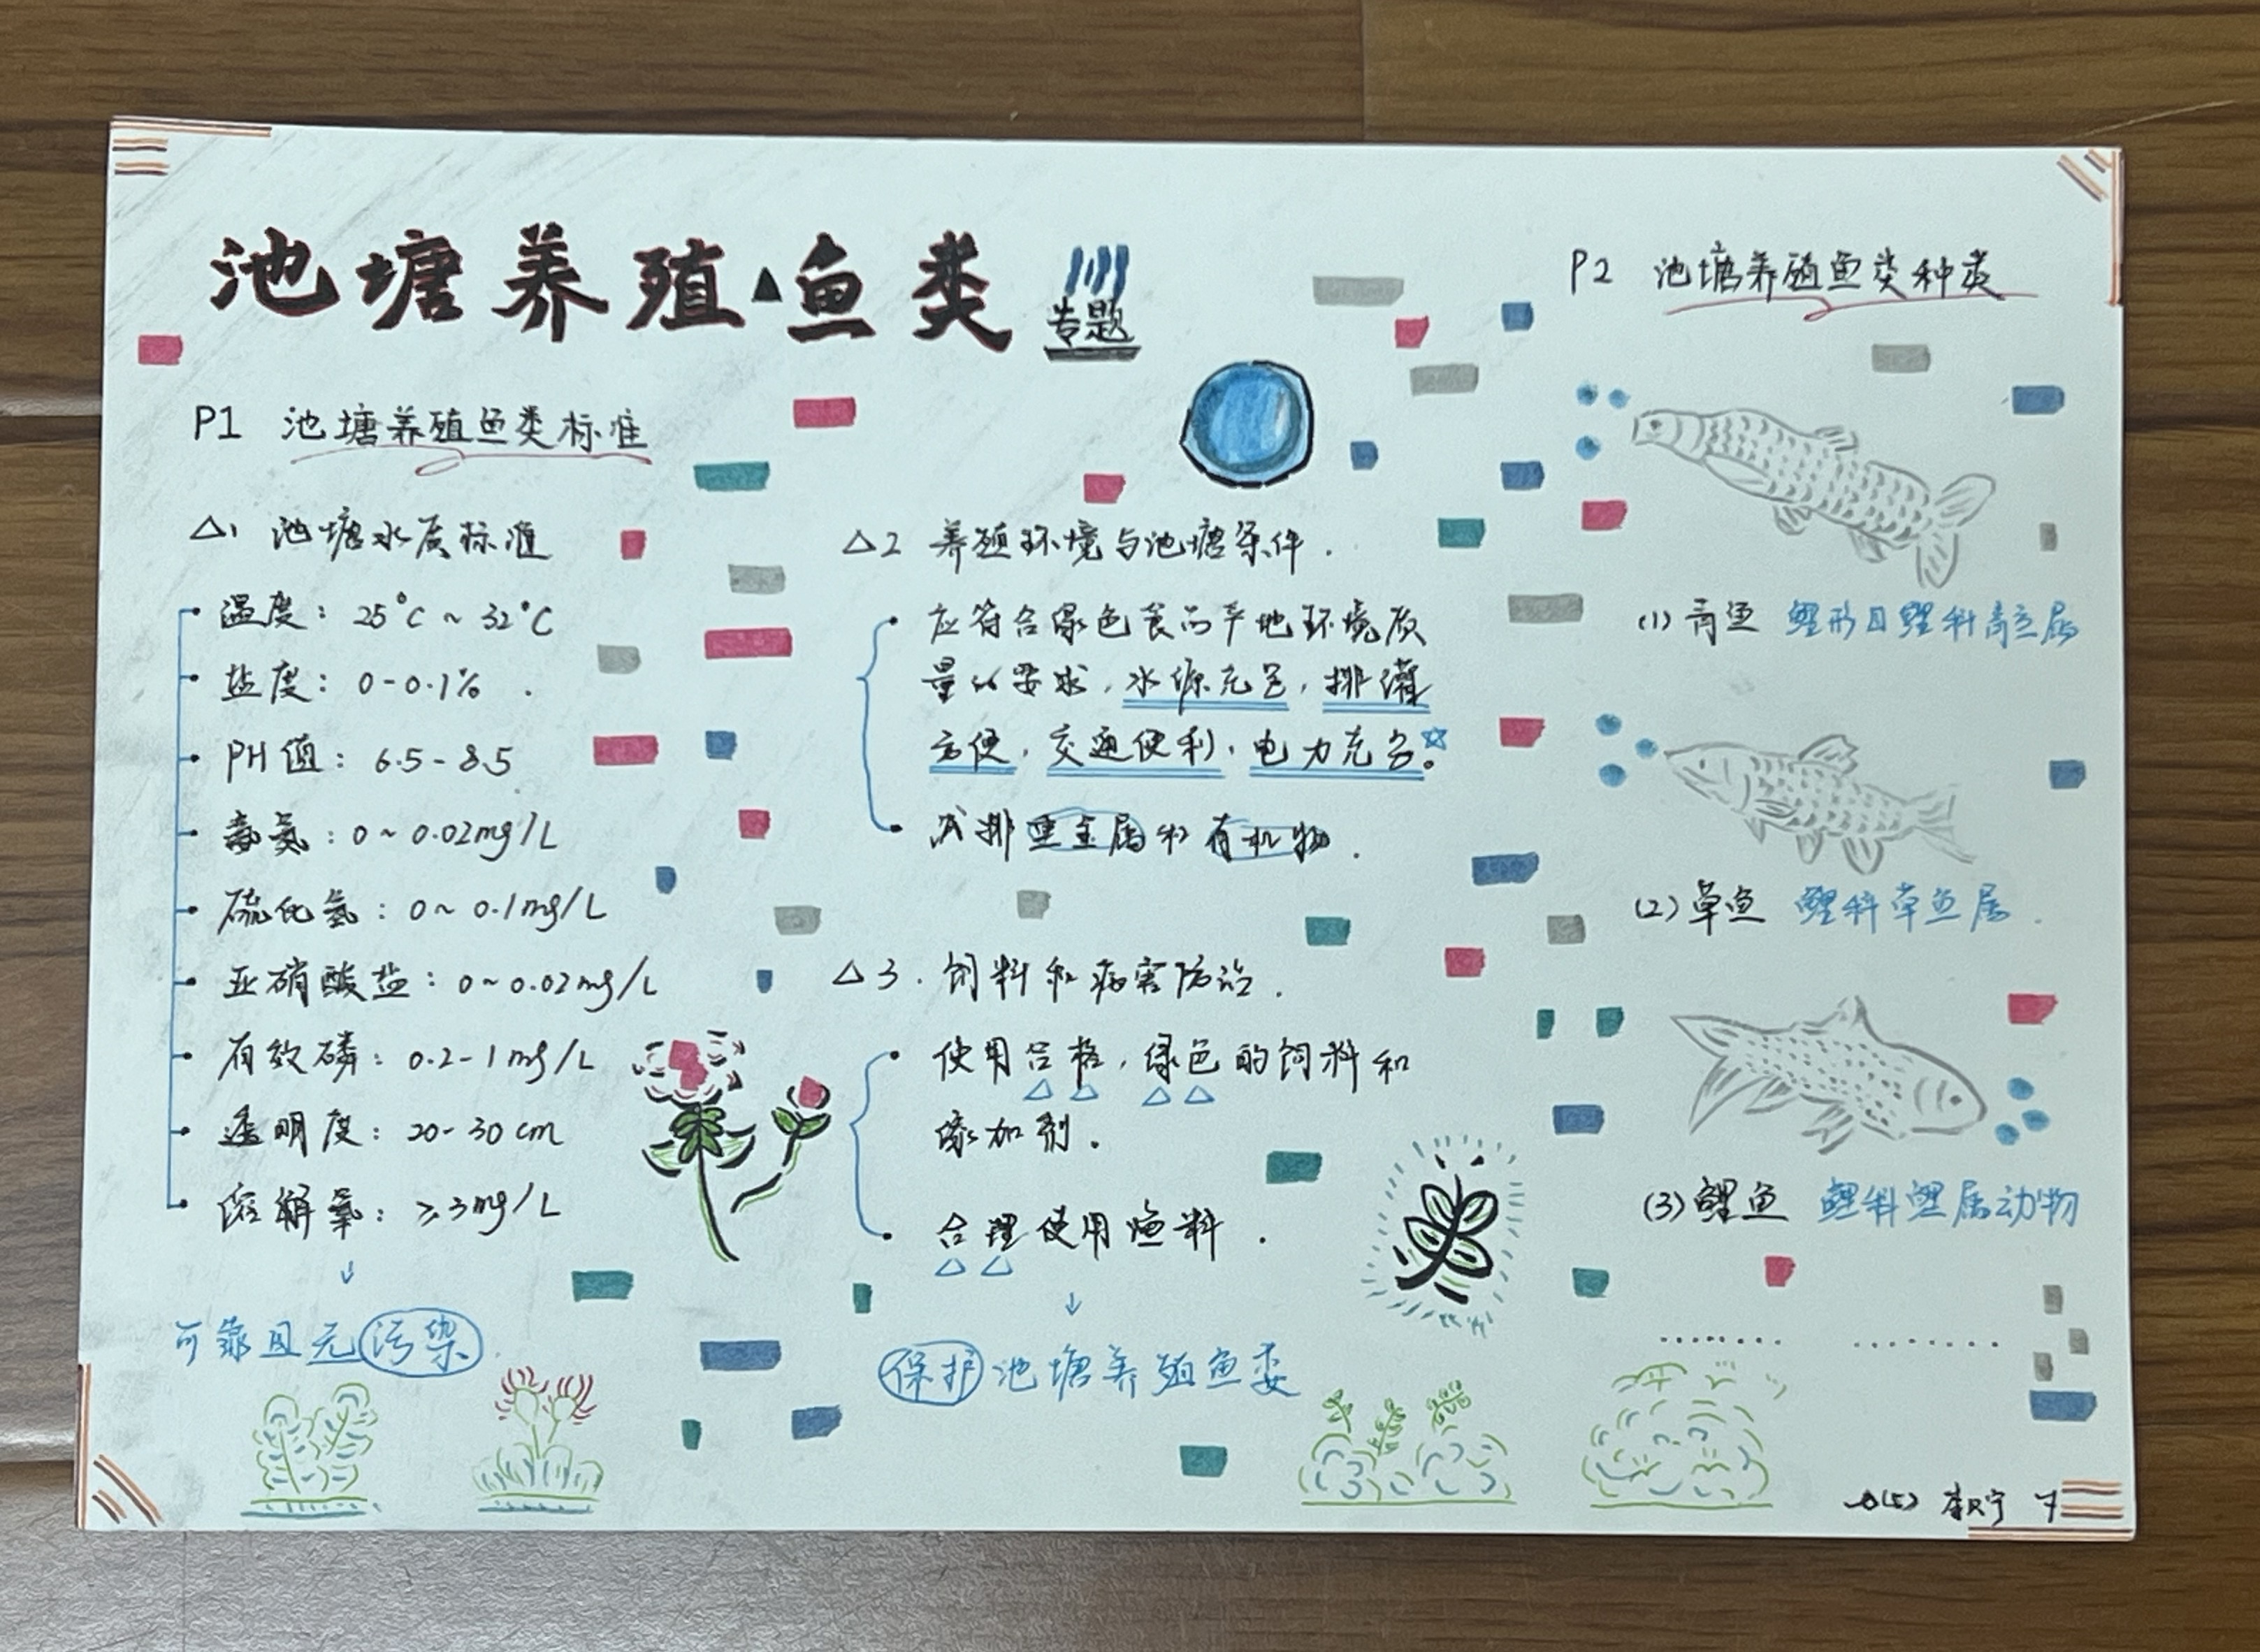 池塘养殖▲鱼类
专题
P1 池塘养殖鱼类标准
△1 池塘水质标准
温度：25°C ~ 32°C
盐度：0-0.1% .
PH值：6.5-8.5
毒氨：0 ~ 0.02mg/L
硫化氢：0 ~ 0.1mg/L
亚硝酸盐：0 ~ 0.02mg/L
有效磷：0.2-1mg/L
透明度：20-30cm
溶解氧：≥3mg/L
↓
可靠且无污染
△2 养殖环境与池塘条件.
应符合绿色食品产地环境质
量的要求，水源充足，排灌
方便，交通便利，电力充足☆。
减排重金属和有机物.
△3. 饲料和病害防治.
使用合格，绿色的饲料和
添加剂。
合理使用渔料.
↓
保护池塘养殖鱼类
P2 池塘养殖鱼类种类
(1)青鱼 鲤形目鲤科青鱼属
(2)草鱼 鲤科草鱼属.
(3)鲤鱼 鲤科鲤属动物
....... .......